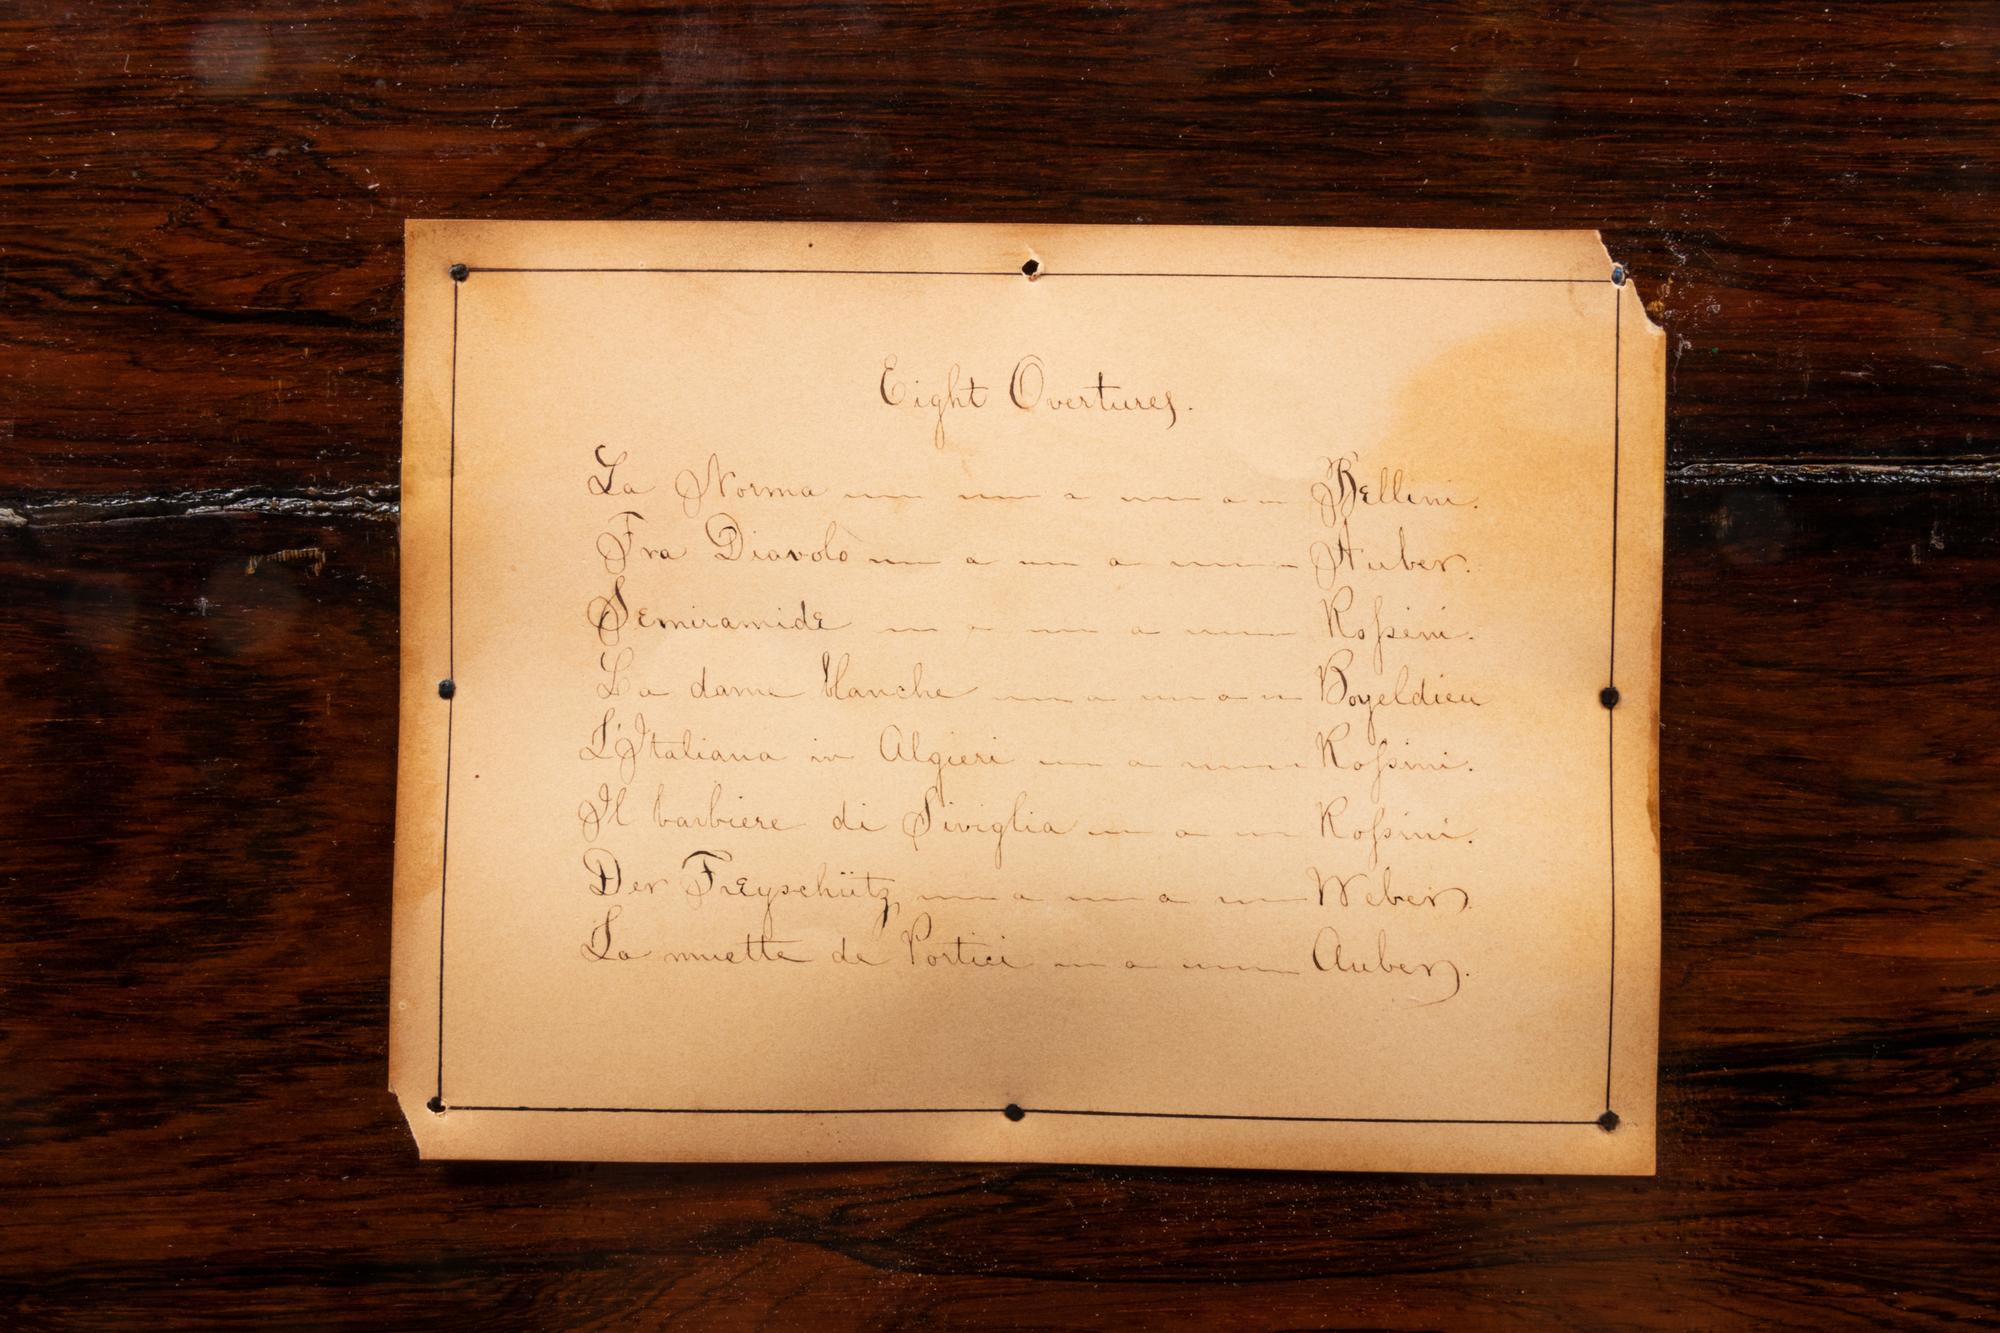 Eight Overtures.
La Norma Bellini.
Fra Diavolo Auber.
Semiramide Roſsini.
La dame blanche Boyeldieu
L'Italiana in Algieri Roſsini.
Il barbiere di Siviglia Roſsini.
Der Freyschütz Weber.
La muette de Portici Auber.